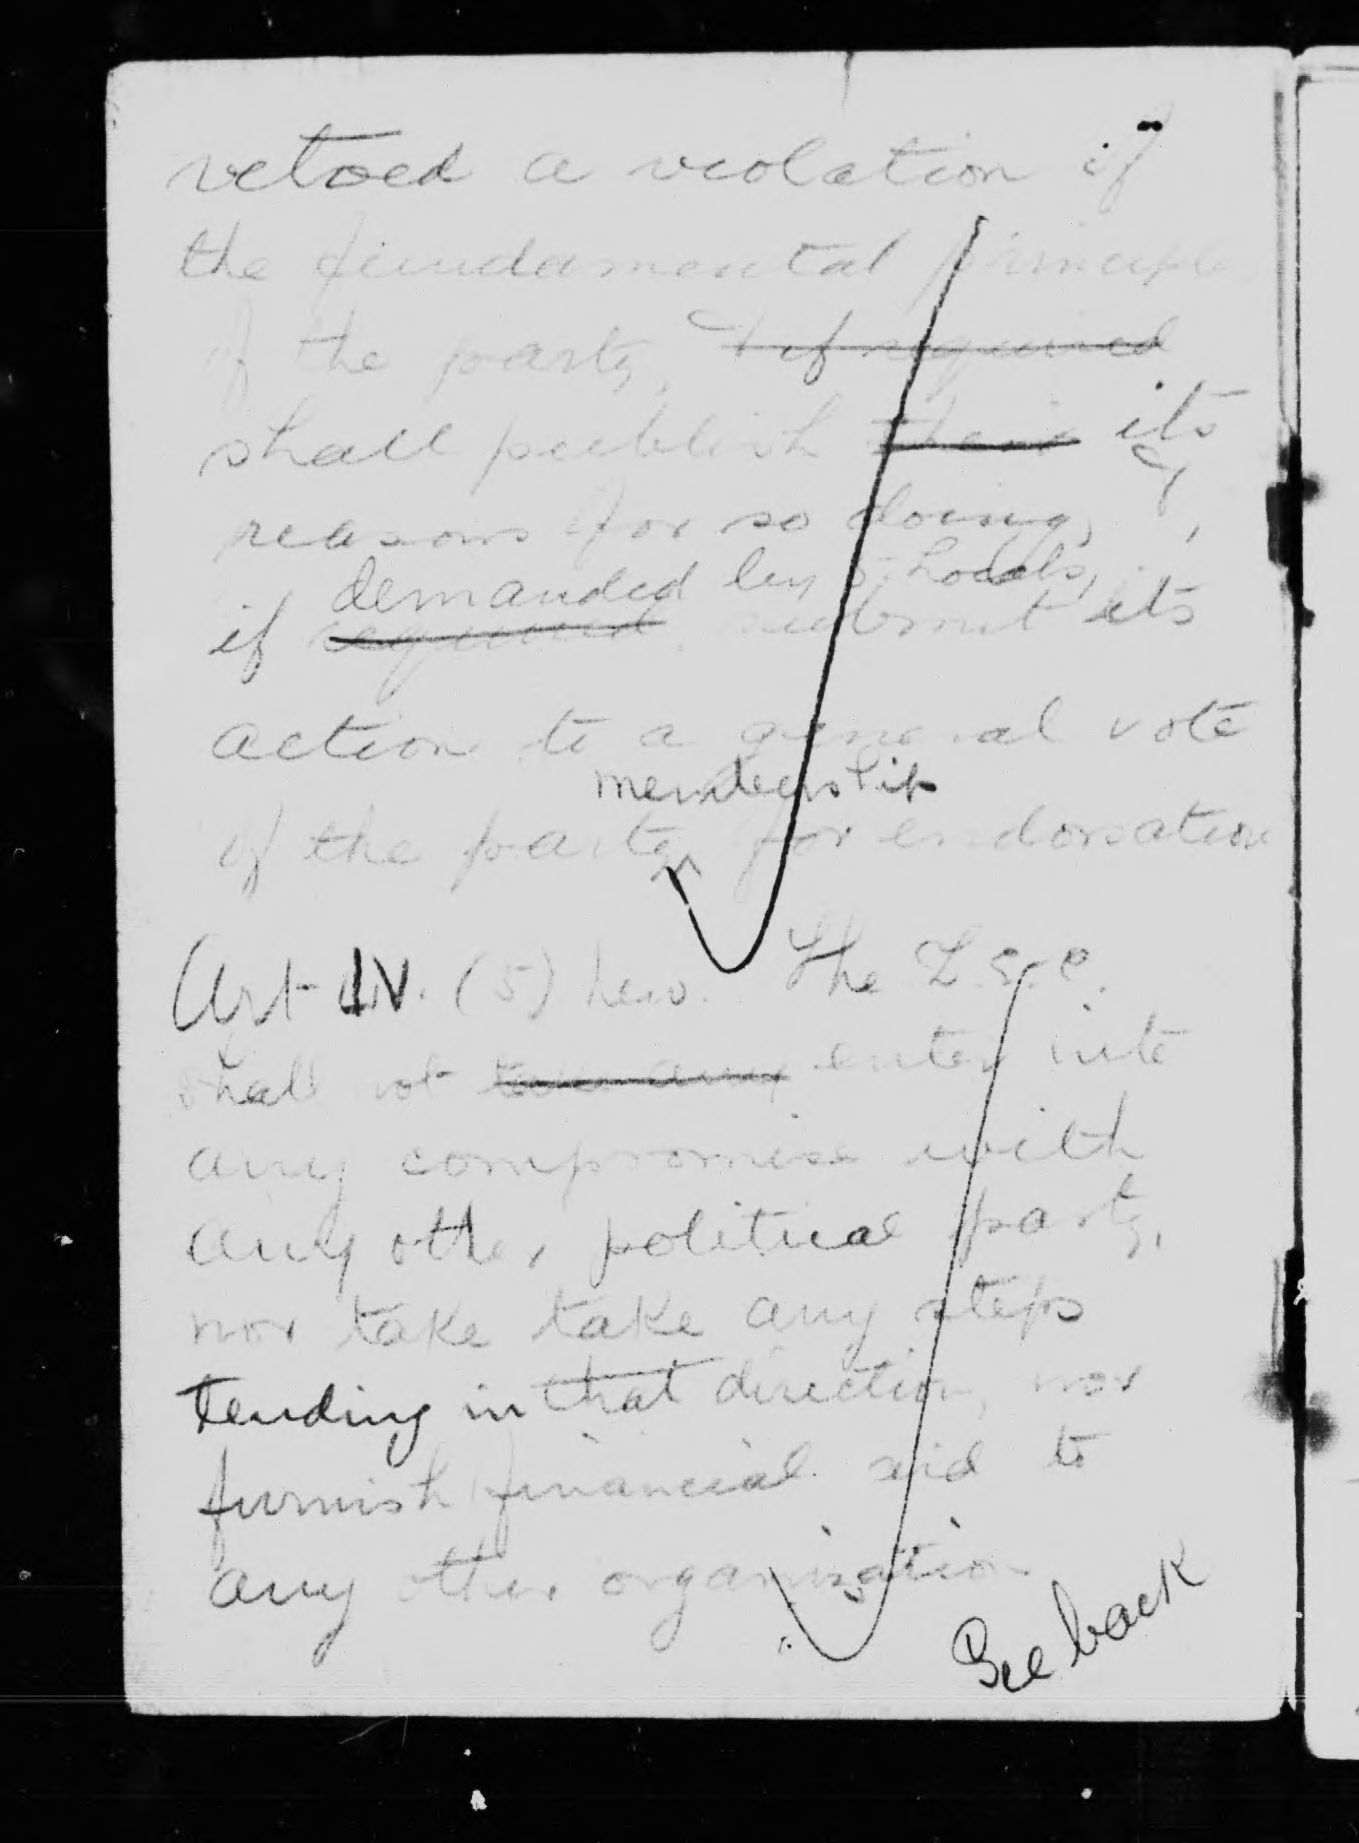 vetoed a violation of
the fundamental principles
of the party, & if required
shall publish their its
reasons for so doing, &,
demanded by 5 Locals,
if required, submit its
action to a general vote
membership
of the party ^ for endorsation
Art IV. (5) new. The
shall not take any enter into
any compromise with
any other political party,
nor take take any steps
tending in that direction, nor
furnish financial aid to
any other organization
See back